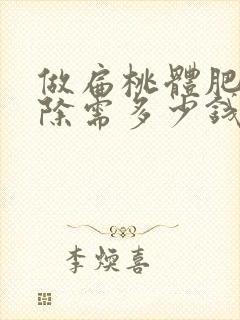 做扁桃體肥
除需多少錢
李煥喜